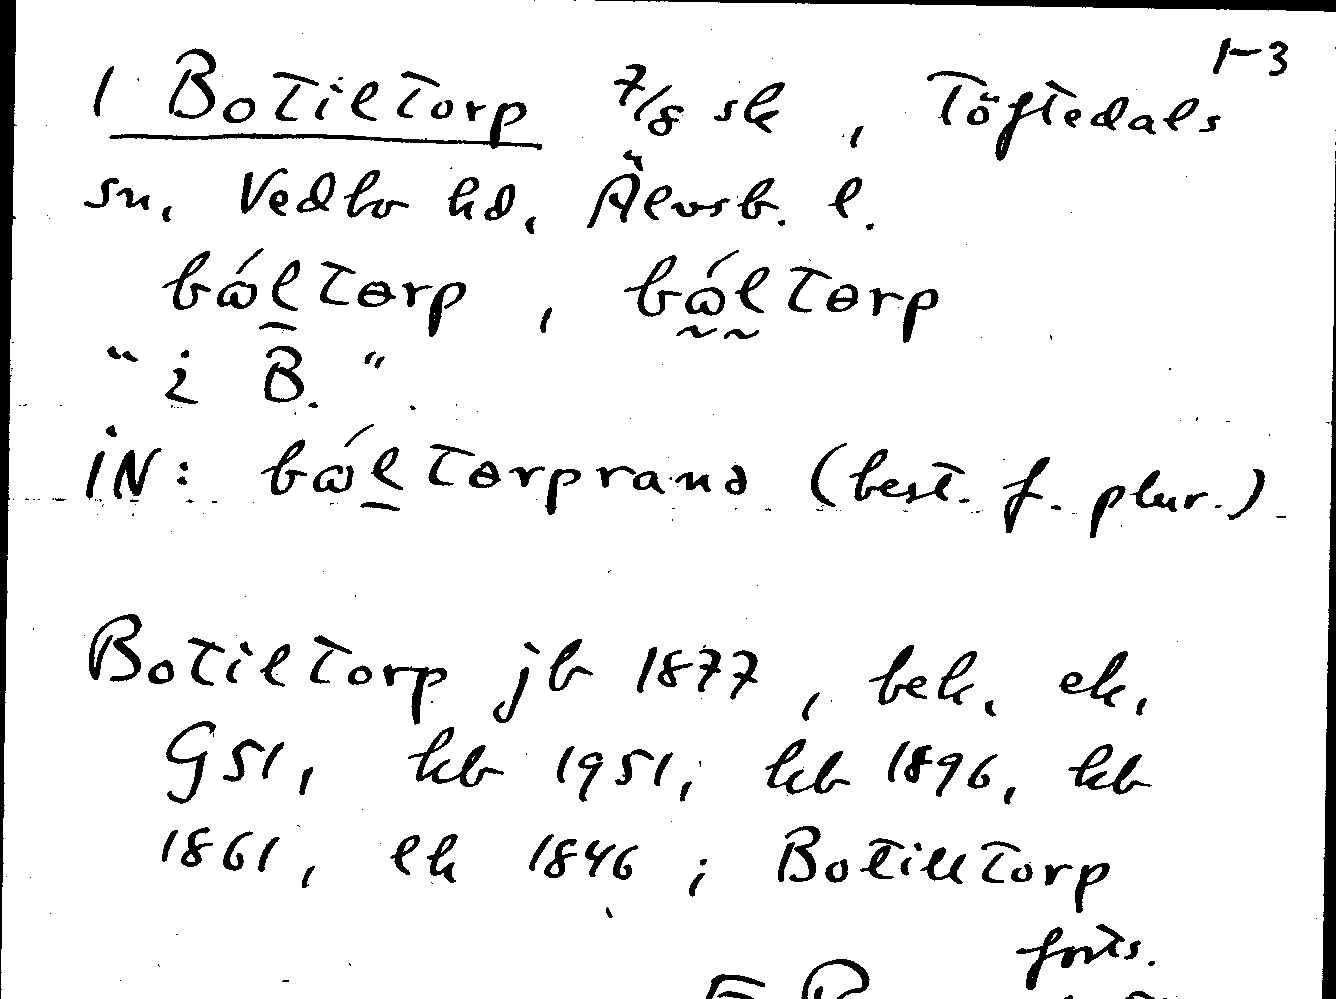 1-3
1 Botiltorp 7/8 sk, Töftedals
sn, Vedbo hd, Älvsb. l.
bώl̲tɵrp, bώltɵrp
"i B."
iN: bώl̲tɵrprana (best. f. plur.)
Botiltorp jb 1877, bek. ek,
G51, kb 1951, kb 1896, kb
1861, lh 1846; Botilltorp
forts.